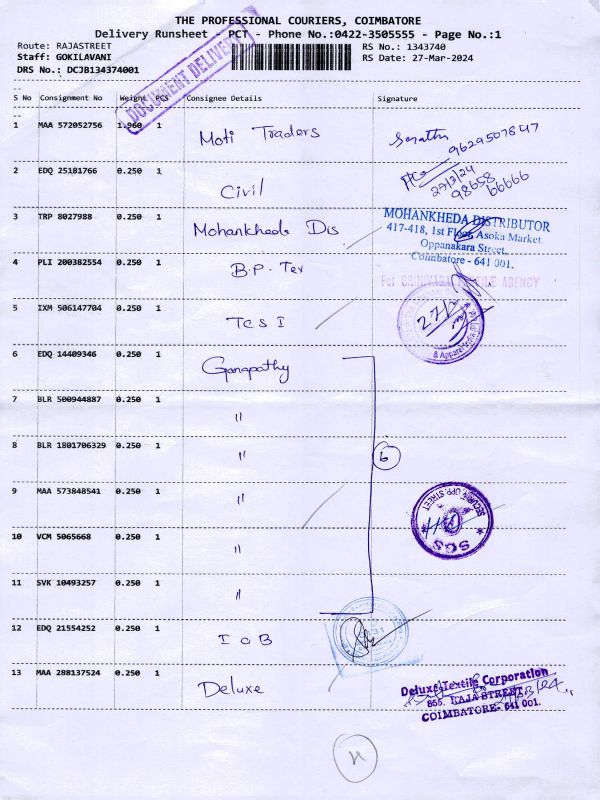 THE PROFESSIONAL COURIERS, COIMBATORE
Delivery Runsheet - PCT - Phone No.:0422-3505555 - Page No.:1
Route: RAJASTREET
RS No.: 1343740
Staff: GOKILAVANI
RS Date: 27-Mar-2024
DRS No.: DCJB134374001
DOCUMENT DELIVERY
S No Consignment No Weight PCS Consignee Details Signature
1 MAA 572052756 1.960 1 Moti Traders
9629507847
2 EDQ 25181766 0.250 1 Civil
27/3/24
98658
66666
3 TRP 8027988 0.250 1 Mohankheda Dis
MOHANKHEDA DISTRIBUTOR
417-418, 1st Floor, Asoka Market.
Oppanakara Street,
Coimbatore - 641 001.
4 PLI 200382554 0.250 1 B.P. Tex
For SRINIVASA TEXTILE AGENCY
5 IXM 506147704 0.250 1 TCS I
6 EDQ 14409346 0.250 1 Ganapathy
7 BLR 500944887 0.250 1 "
8 BLR 1801706329 0.250 1 "
6
9 MAA 573848541 0.250 1 "
SECURITY, OPP. STREET
SGS
10 VCM 5065668 0.250 1 "
11 SVK 10493257 0.250 1 "
12 EDQ 21554252 0.250 1 I O B
13 MAA 288137524 0.250 1 Deluxe
Deluxe Textile Corporation
855, RAJA STREET,
COIMBATORE- 641 001.